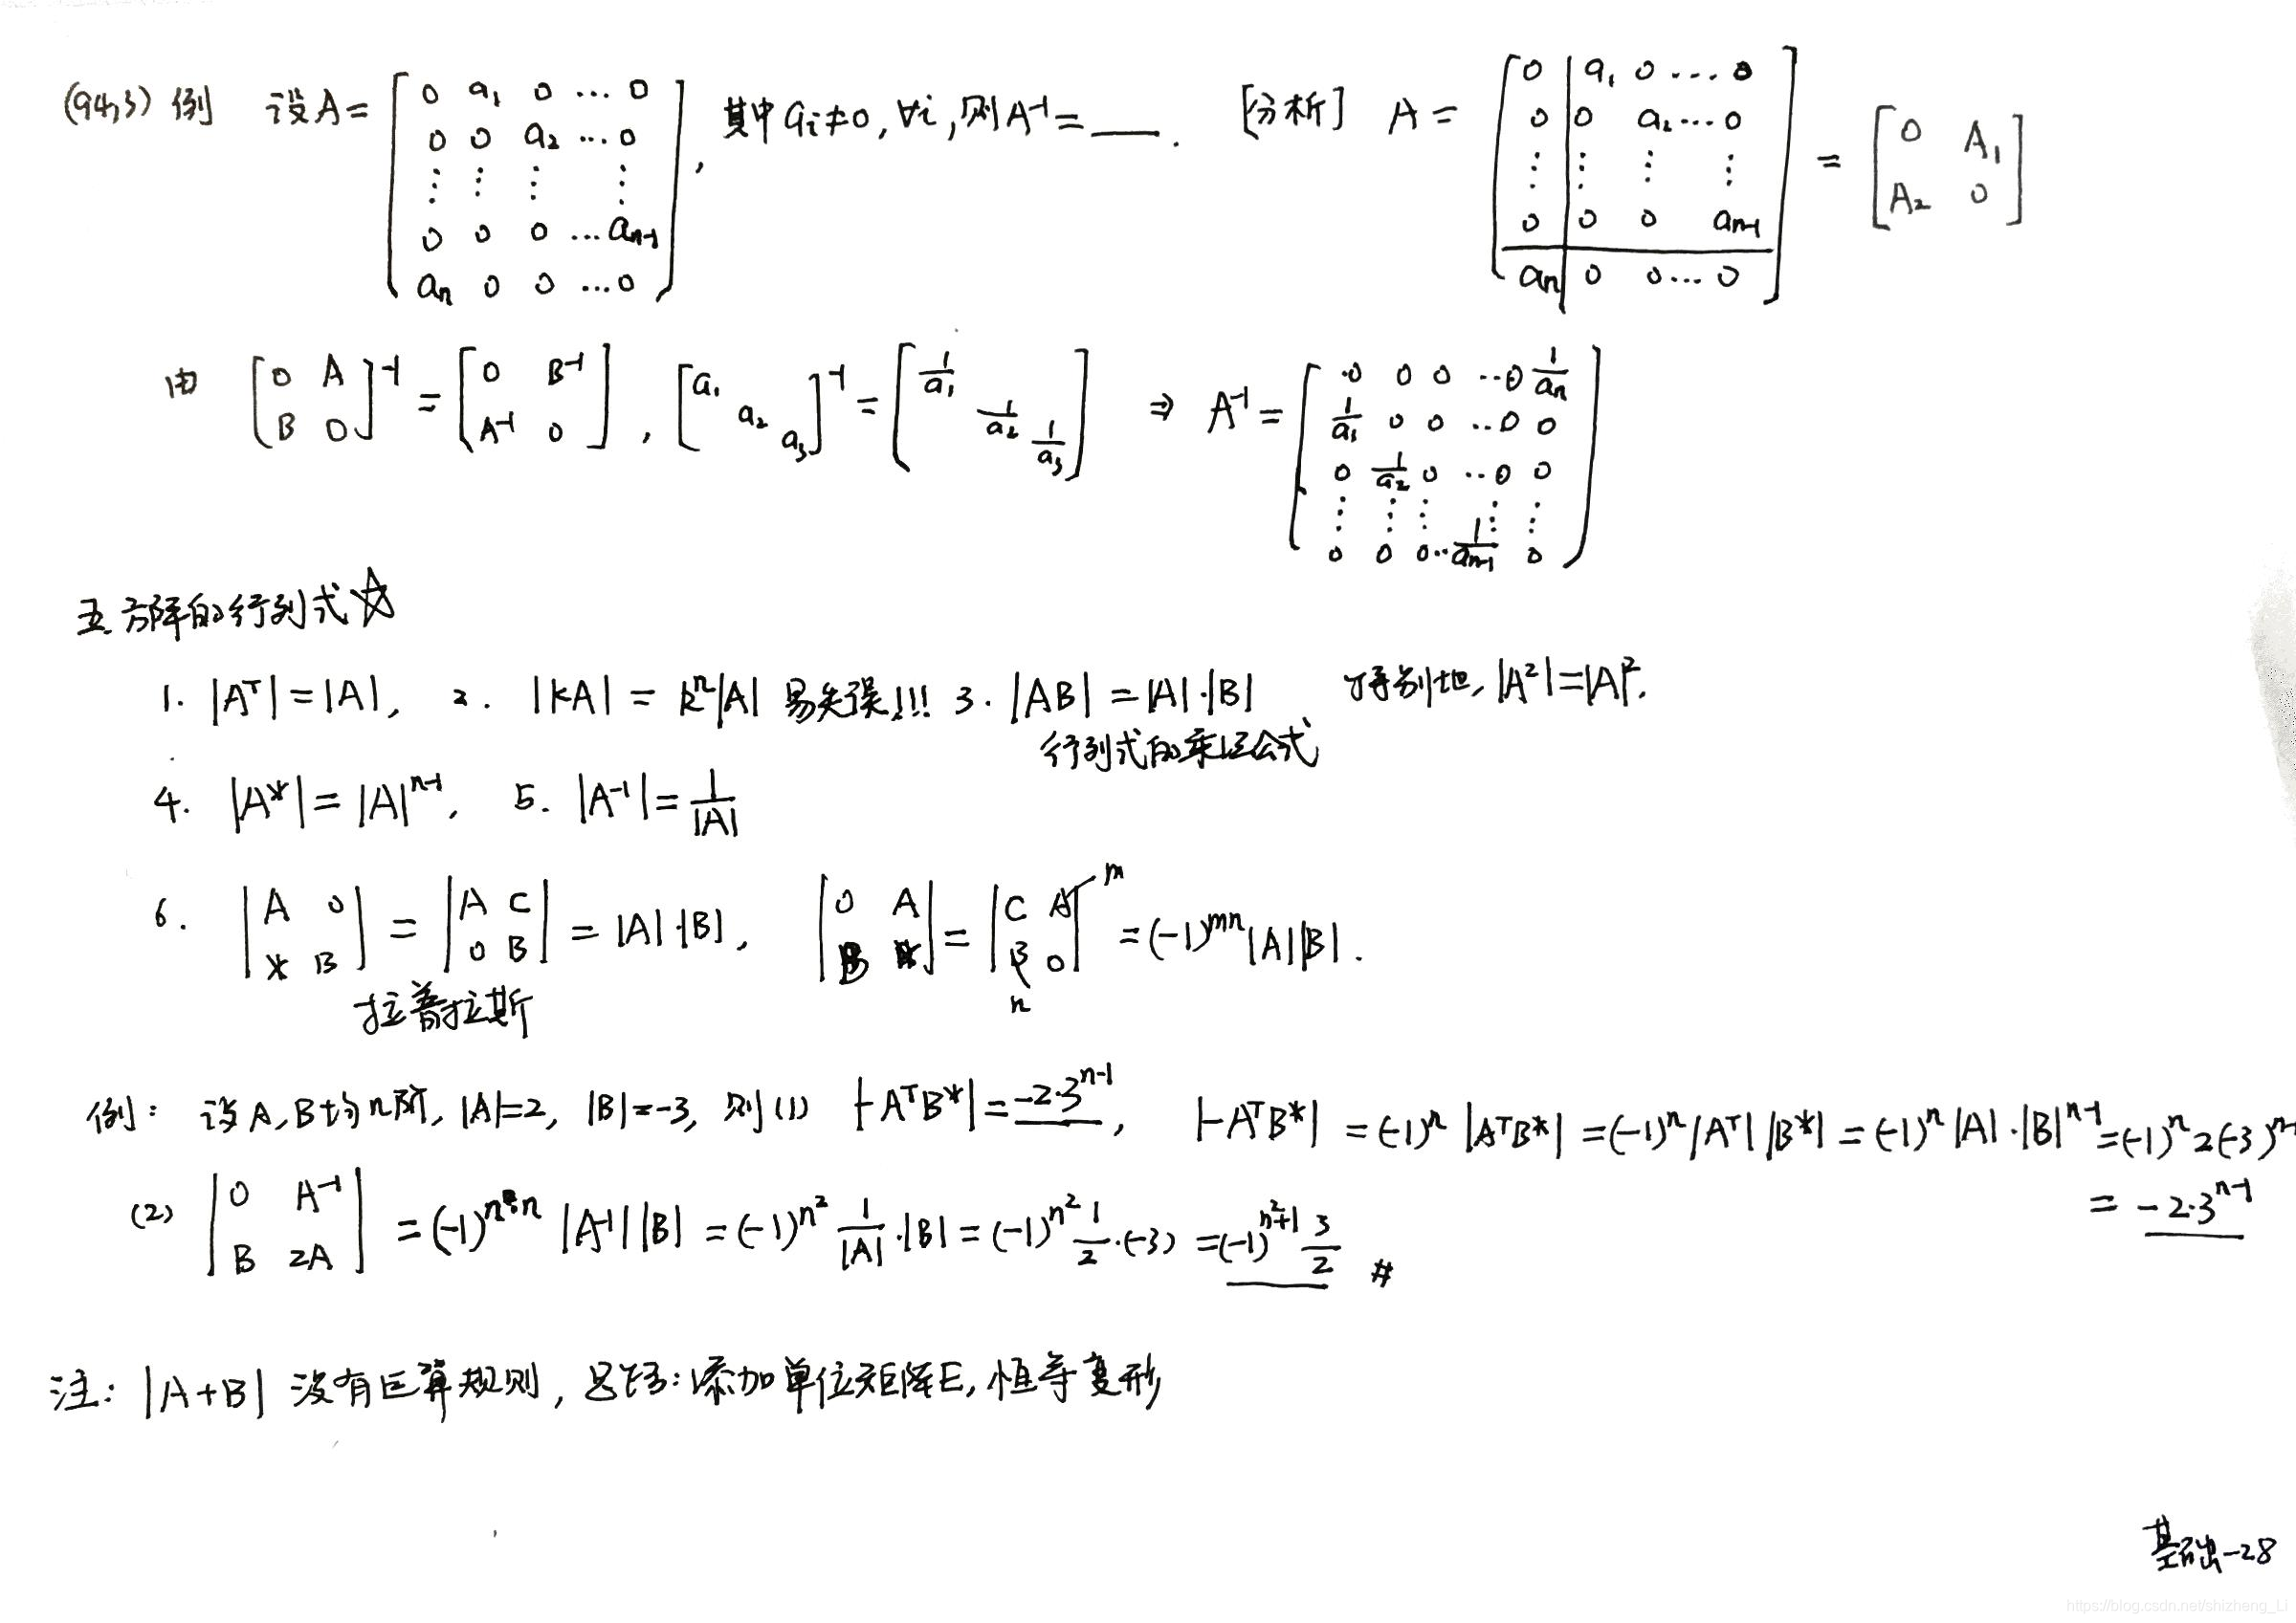 (94,3) 例 设A= [0 a₁ 0 ... 0; 0 0 a₂ ... 0; ⋮ ⋮ ⋮ ⋮; 0 0 0 ... aₙ₋₁; aₙ 0 0 ... 0], 其中 aᵢ≠0, ∀i, 则A⁻¹=___. [分析] A = [0 a₁ 0 ... 0; 0 0 a₂ ... 0; ⋮ ⋮ ⋮ ⋮; 0 0 0 aₙ₋₁; aₙ 0 0 ... 0] = [0 A₁; A₂ 0]
由 [0 A; B 0]⁻¹ = [0 B⁻¹; A⁻¹ 0], [a₁ a₂ a₃]⁻¹ = [1/a₁ 1/a₂ 1/a₃] ⇒ A⁻¹ = [0 0 0 ..0 1/aₙ; 1/a₁ 0 0 ..0 0; 0 1/a₂ 0 ..0 0; ⋮ ⋮ ⋮ ⋮ ⋮; 0 0 0.. 1/aₙ₋₁ 0]
五.方阵的行列式☆
1. |Aᵀ|=|A|, 2. |kA| = kⁿ|A| 易失误!!! 3. |AB| = |A|·|B| 特别地, |A²|=|A|².
行列式的乘法公式
4. |A*|=|A|ⁿ⁻¹, 5. |A⁻¹|=1/|A|
6. |A 0; * B| = |A C; 0 B| = |A|·|B|, |0 A; B *| = |C A; B 0| = (-1)ᵐⁿ|A||B|.
m
n
拉普拉斯
例: 设A,B均n阶, |A|=2, |B|=-3, 则(1) |-AᵀB*|=-2·3ⁿ⁻¹, |-AᵀB*| = (-1)ⁿ |AᵀB*| = (-1)ⁿ|Aᵀ||B*| = (-1)ⁿ|A|·|B|ⁿ⁻¹ = (-1)ⁿ2(-3)ⁿ⁻
= -2·3ⁿ⁻¹
(2) |0 A⁻¹; B 2A| = (-1)ⁿ˙ⁿ |A⁻¹||B| = (-1)^n² 1/|A|·|B| = (-1)^n² 1/2·(-3) = (-1)^(n²+1) 3/2 #
注: |A+B| 没有运算规则, 思路: 添加单位矩阵E, 恒等变形
基础-28
https://blog.csdn.net/shizheng_Li